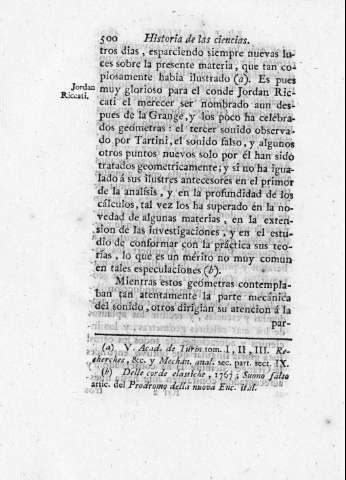 500 Historia de las ciencias.
tros dias, esparciendo siempre nuevas lu-
ces sobre la presente materia, que tan co-
piosamente habia ilustrado (a). Es pues
Jordan
Riccati.
muy glorioso para el conde Jordan Ric-
cati el merecer ser nombrado aun des-
pues de la Grange, y los poco ha celebra-
dos geómetras: el tercer sonido observa-
do por Tartini, el sonido falso, y algunos
otros puntos nuevos solo por él han sido
tratados geometricamente; y si no ha igua-
lado á sus ilustres antecesores en el primor
de la analisis, y en la profundidad de los
cálculos, tal vez los ha superado en la no-
vedad de algunas materias, en la exten-
sion de las investigaciones, y en el estu-
dio de conformar con la práctica sus teo-
rías, lo que es un mérito no muy comun
en tales especulaciones (b).
Mientras estos geómetras contempla-
ban tan atentamente la parte mecánica
del sonido, otros dirigian su atencion á la
par-
(a) V. Acad. de Turin tom. I, II, III. Re-
cherches, &c. y Mechan. anal. sec. part. sect. IX.
(b) Delle corde elastiche, 1767; Suono falso
artic. del Prodromo della nuova Enc. ital.